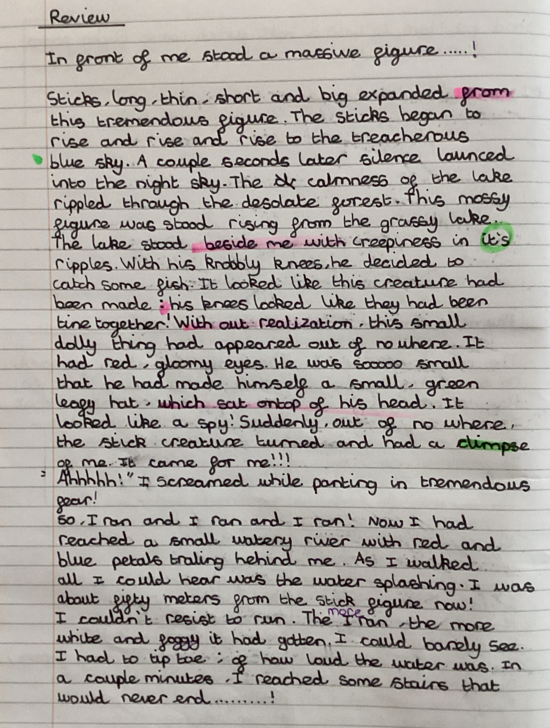 Review
In front of me stood a massive figure.....!
Sticks, long, thin, short and big expanded from
this tremendous figure. The sticks began to
rise and rise and rise to the treacherous
blue sky. A couple seconds later silence launced
into the night sky. The calmness of the lake
rippled through the desolate forest. This mossy
figure was stood rising from the grassy lake.
The lake stood beside me with creepiness in it's
ripples. With his knobbly knees, he decided to
catch some fish. It looked like this creature had
been made ; his knees looked like they had been
tine together! With out realization, this small
dolly thing had appeared out of no where. It
had red, gloomy eyes. He was sooooo small
that he had made himself a small, green
leafy hat, which sat ontop of his head. It
looked like a spy! Suddenly, out of no where,
the stick creature turned and had a climpse
of me. It came for me!!!
" Ahhhhh!" I screamed while panting in tremendous
fear!
So, I ran and I ran and I ran! Now I had
reached a small watery river with red and
blue petals traling behind me. As I walked
all I could hear was the water splashing. I was
about fifty meters from the stick figure now!
I couldn't resist to run. The more I ran, the more
white and foggy it had gotten. I could barely see.
I had to tip toe ; of how loud the water was. In
a couple minutes, I reached some stairs that
would never end.........!